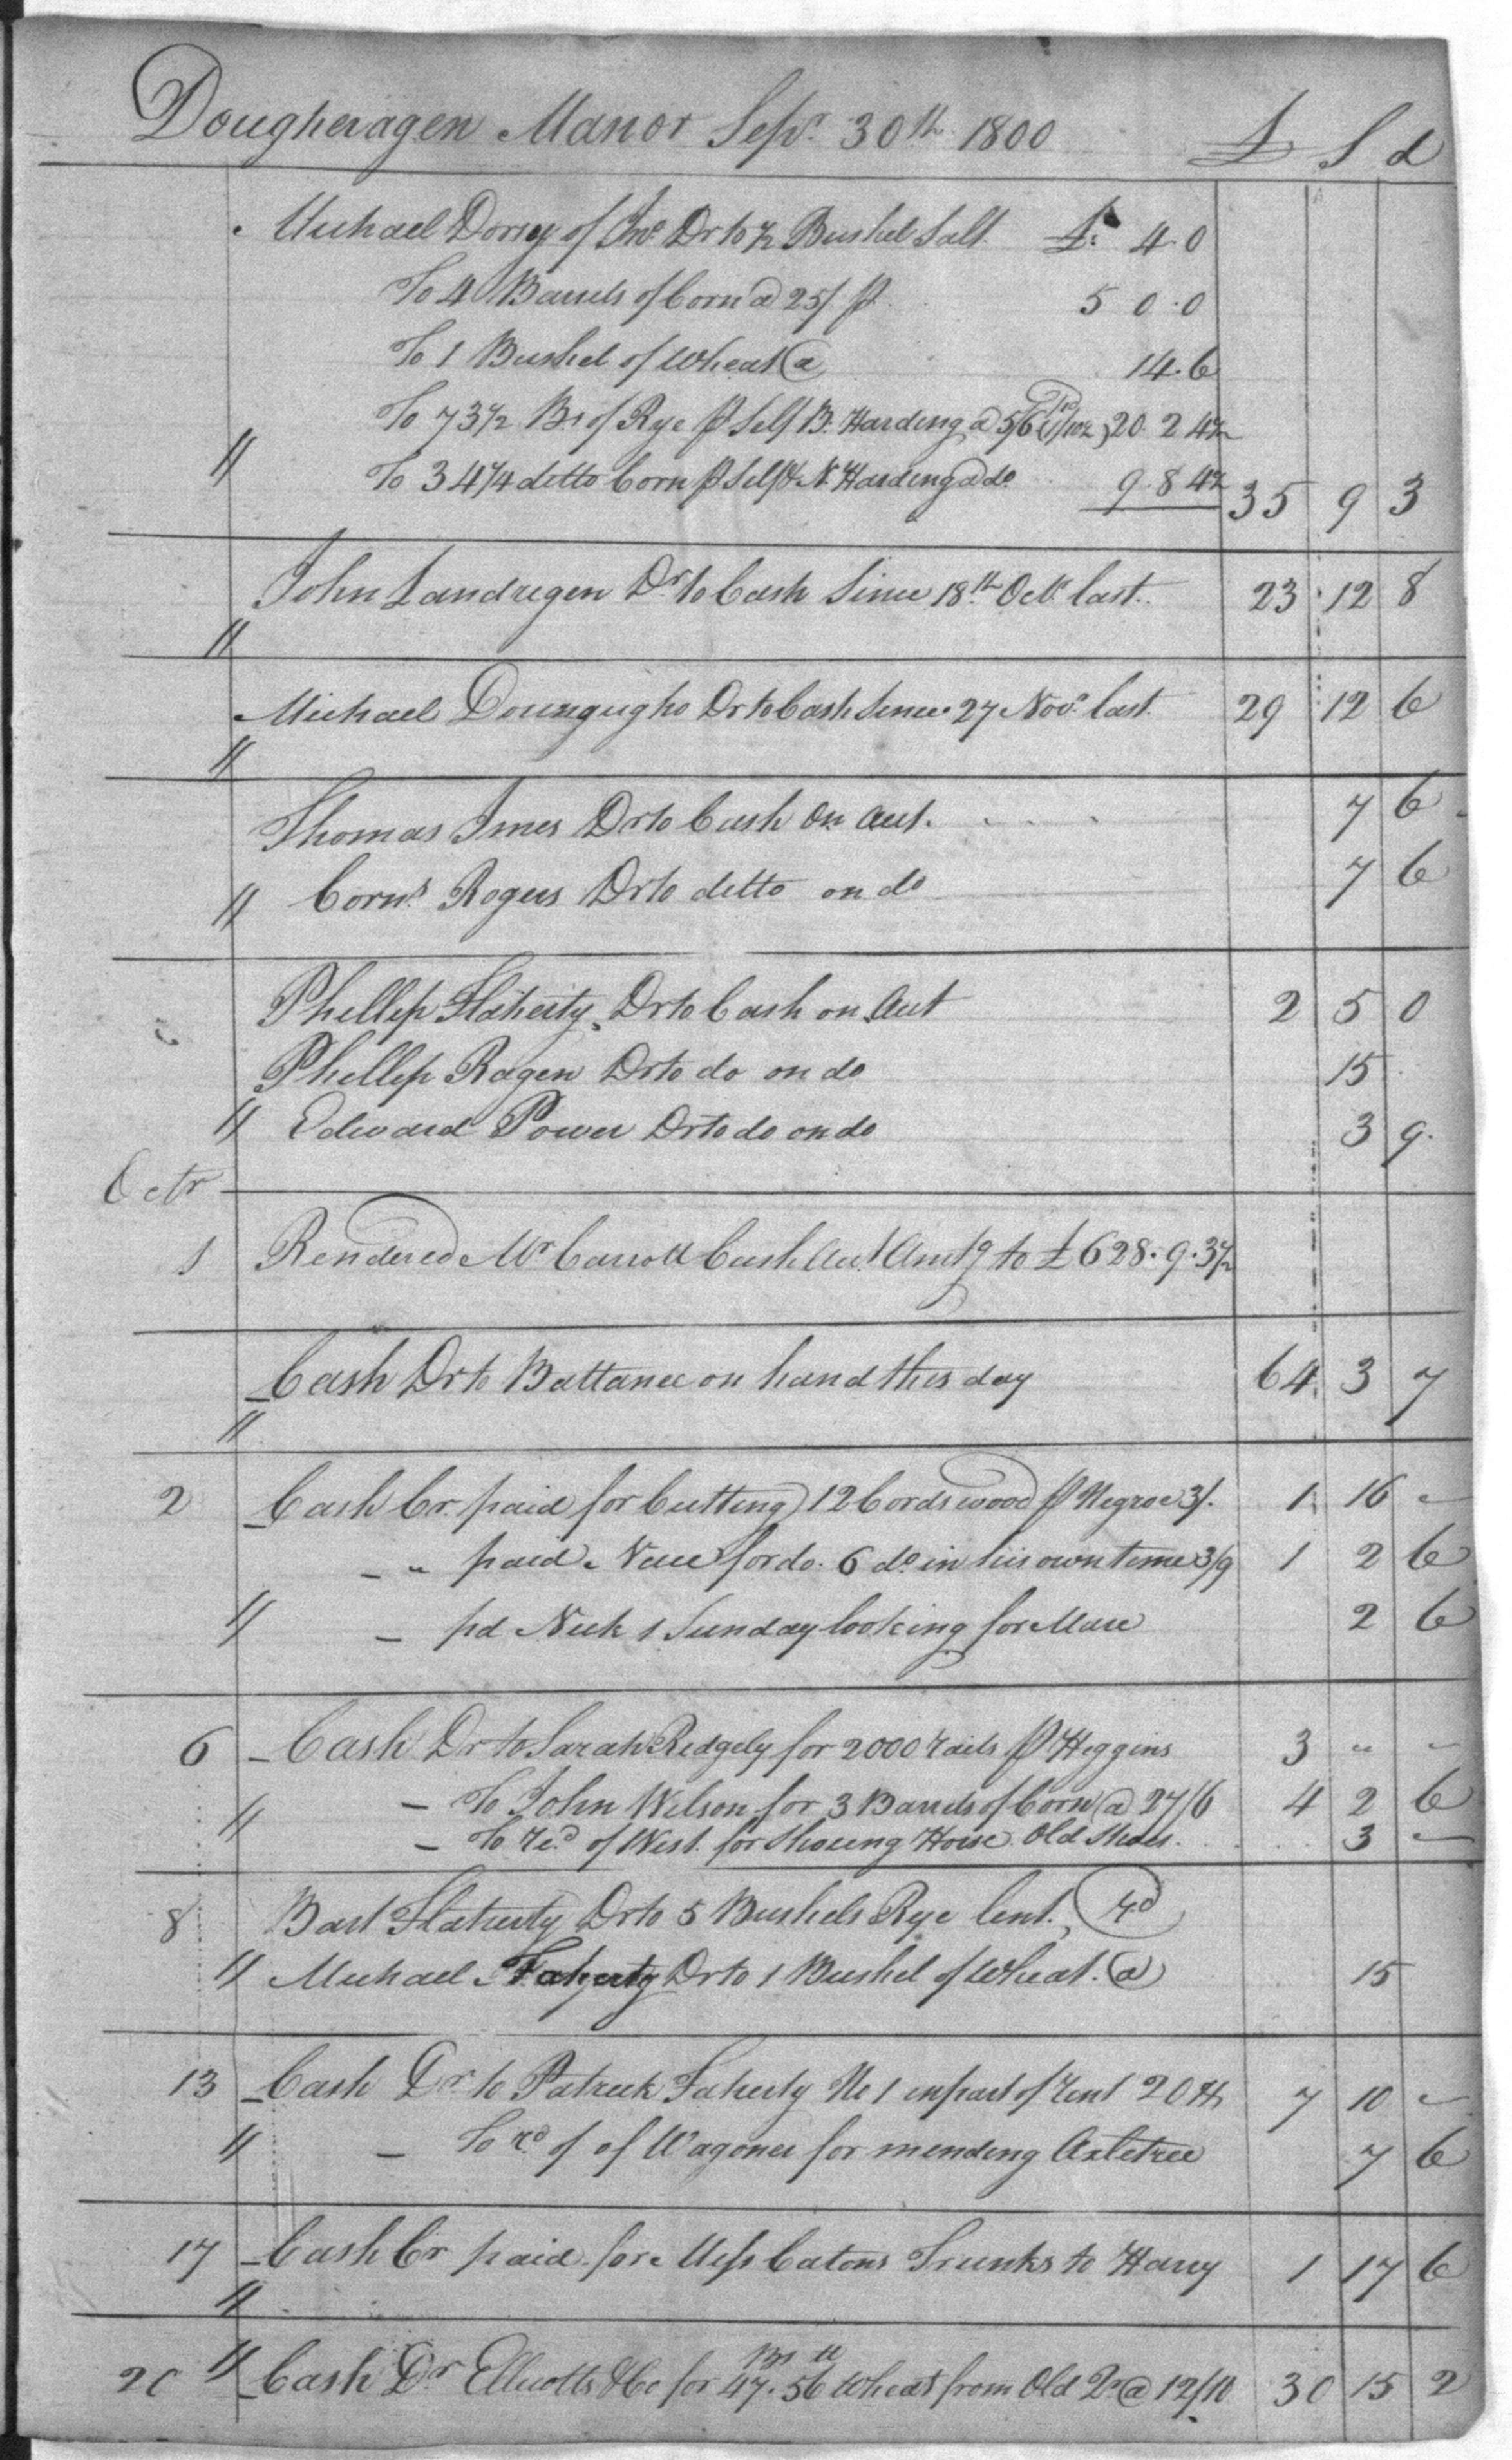 Dougheragen Manor Sepr. 30th 1800 £ S d
Michael Dorsey of Jno. Dr to ½ Bushel Salt £ 4.0
To 4 Barrels of Corn @ 25/ p 5 0.0
To 1 Bushel of Wheat @ 14.6
To 73½ Bs of Rye p Self B. Harding @ 5/6 20 2 4½
// To 34¼ ditto Corn p Self & N. Harding @ do. 9.8 4½ 35 9 3
John Landregen Dr. to Cash Since 18th Octr. last 23 12 8
//
Michael Dounguigho Dr to Cash Since 27 Novr. last 29 12 6
//
Thomas Imes Dr to Cash On Acct. 7 6
// Corns. Rogers Dr to ditto on do 7 6
Phillip Flaherty Dr to Cash on Acct 2 5 0
Phillip Ragen Dr to do on do 15
// Edward Power Dr to do on do 3 9
Octr
1 Rendered Mr Carroll Cash Acct. Amtg to £628.9.3½
Cash Dr to Ballance on hand this day 64 3 7
//
2 Cash Cr. paid for Cutting 12 Cords wood p Negroe 3/. 1 16 -
- " paid for do. 6 do. in his own time 3/9 1 2 6
// - pd Nick 1 Sunday looking for Mare 2 6
6 - Cash Dr to Sarah Ridgely for 2000 rails p Higgins 3 " -
// - To John Wilson for 3 Barrels of Corn @ 27/6 4 2 6
- To red. of West. for Shoeing Horse Old Shoes. 3 -
8 Bart Flaherty Dr to 5 Bushels Rye lent.
// Michael Faherty Dr to 1 Bushel of Wheat. @ 15
13 Cash Dr. to Patrick Faherty No 1 in part of rent 20 7 10 -
// - To rd. of of Wagoner for mending Axletree 7 6
17 - Cash Cr paid for Miss Catons Trunks to Harry 1 17 6
//
Bs
20 // Cash Dr Ellicotts & Co for 47.56 Wheat from Old Qr @ 12/10 30 15 2